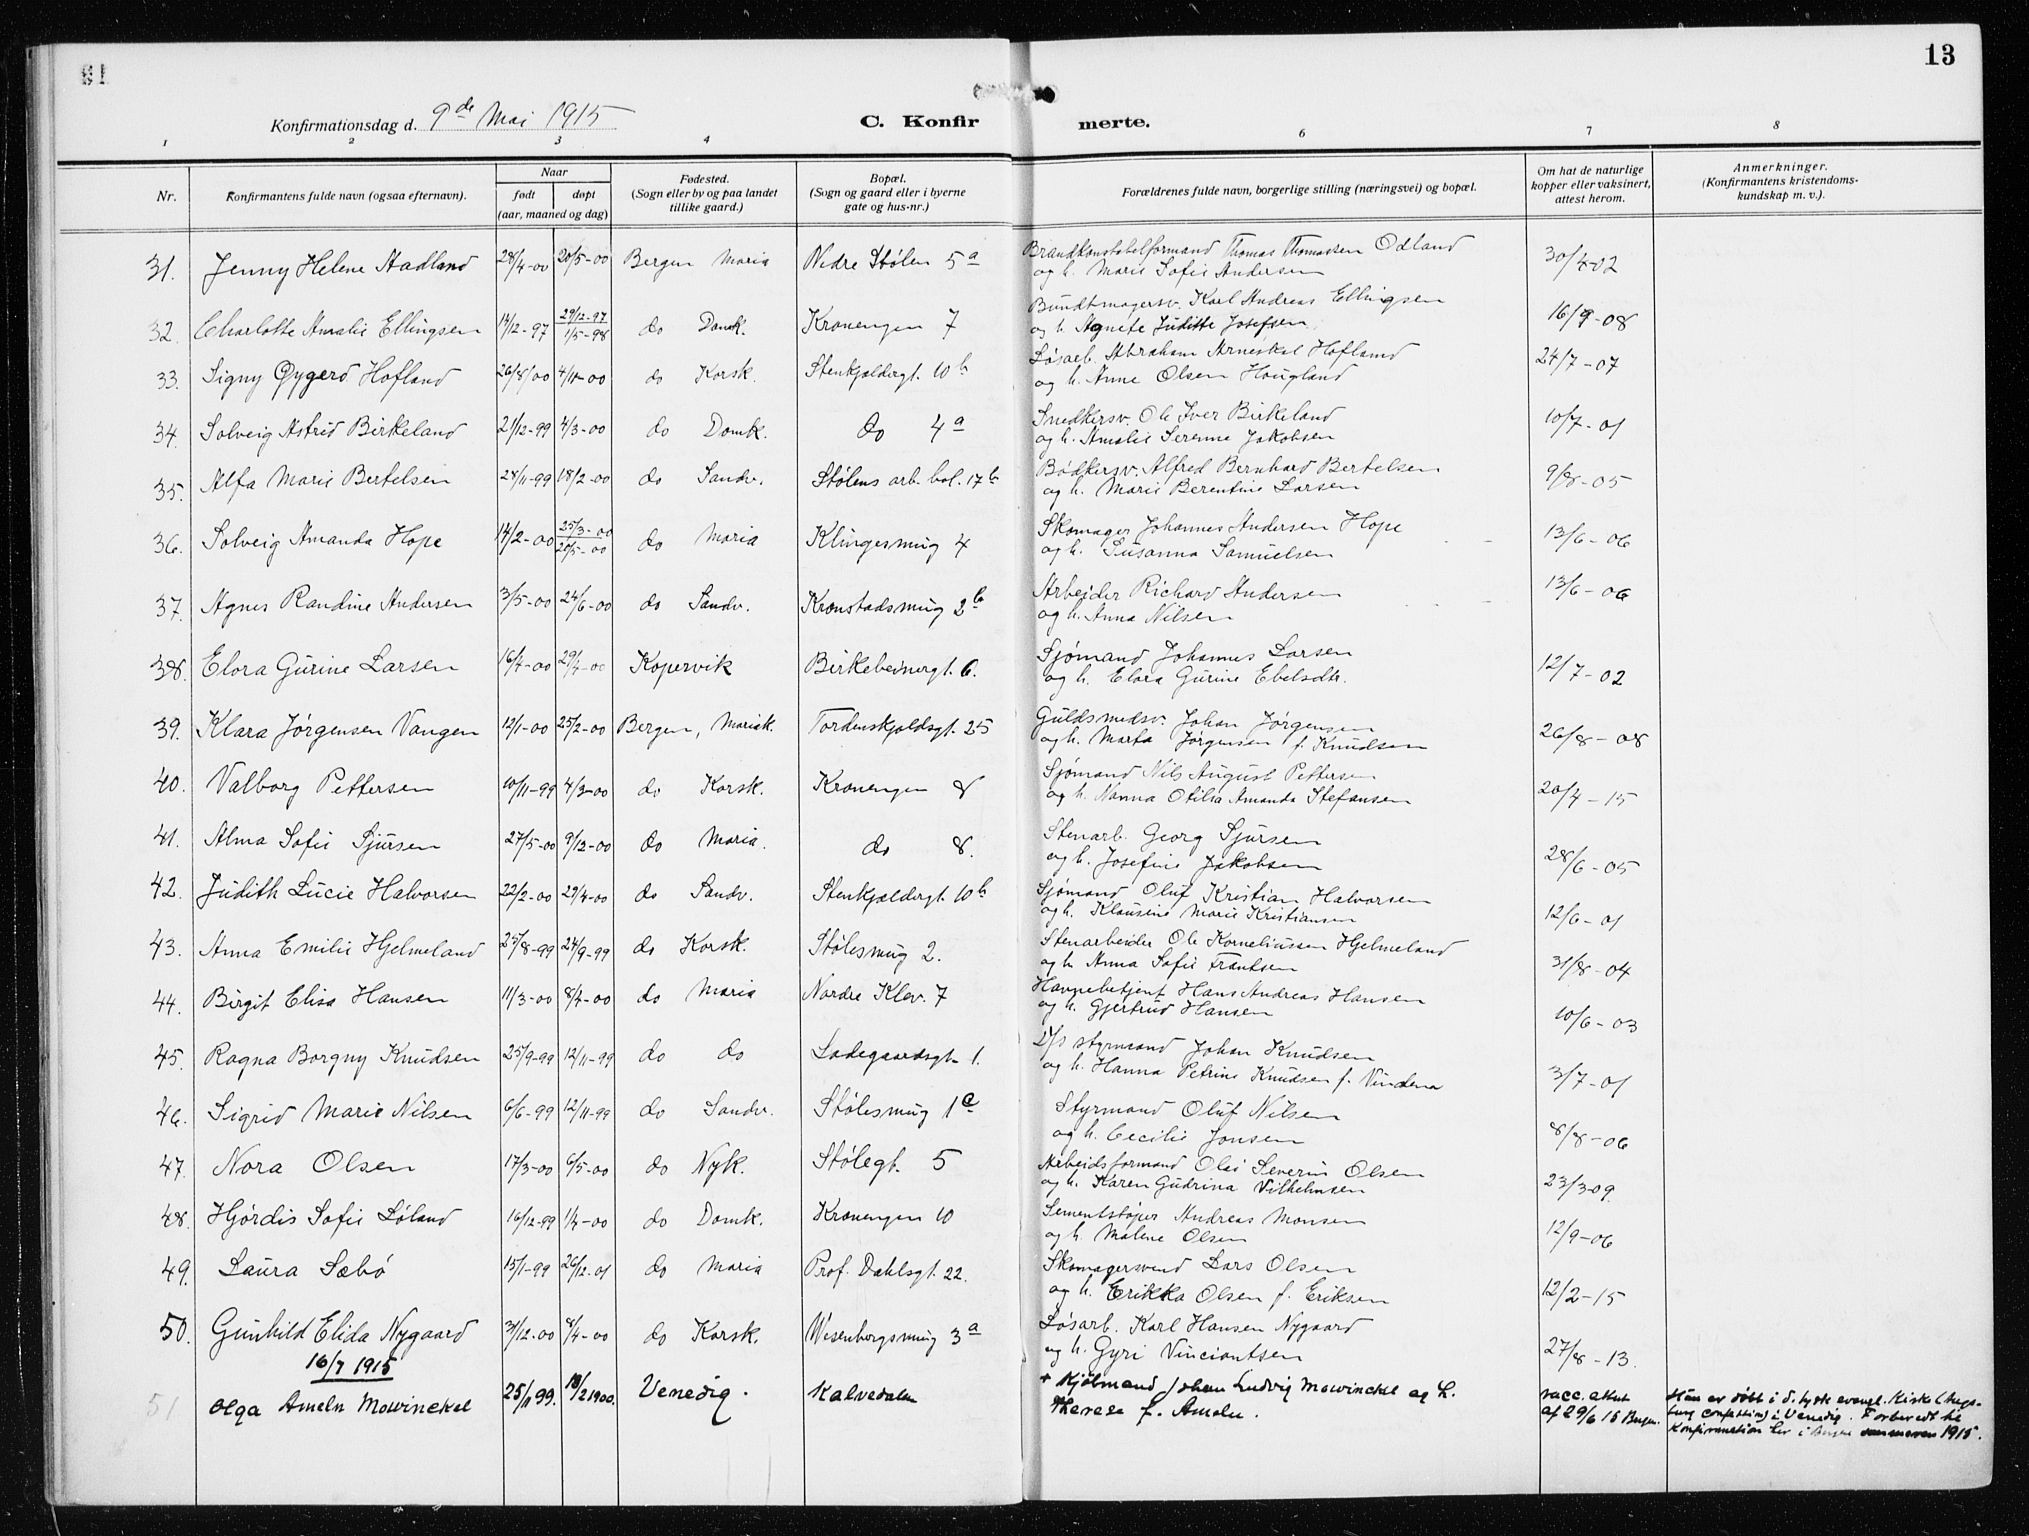 13
Konfirmationsdag d. 9de Mai 1915
C. Konfir merte.
1 2 3 4 6 7 8
Nr. Konfirmantens fulde navn (ogsaa efternavn). Naar født døpt (aar, maaned og dag) Fødested. (Sogn eller by og paa landet tillike gaard.) Bopæl. (Sogn og gaard eller i byerne gate og hus-nr.) Forældrenes fulde navn, borgerlige stilling (næringsvei) og bopæl. Om hat de naturlige kopper eller vaksinert, attest herom. Anmerkninger. (Konfirmantens kristendoms-kundskap m. v.).
31. Jenny Helene Aadland 28/4-00 20/5-00 Bergen Maria Nedre Stølen 5a Brandkonstabelformand Thomas Thomassen Odland
og h. Marie Sofie Andersen 30/4-02
32. Charlotte Amalie Ellingsen 14/12-97 29/12-97 1/5-98 do Domk. Kronengen 7 Bundtmagersv. Karl Andreas Ellingsen
og h. Agnete Juditte Josefsen 16/9-08
33. Signy Gygerd Hofland 26/8/00 4/11-00 do Korsk. Stenkjeldergt. 10b Løsarb. Abraham Hofland
og h. Anne Olsen Hougland 24/7-07
34. Solveig Astrid Birkeland 21/12-99 4/3-00 do Domk. do 4a Snedkersv. Ole Iver Birkeland
og h. Amalie Serenne Jakobsen 10/7-01
35. Alfa Marie Bertelsen 28/11-99 18/2-00 do Sandv. Stølens arb. bol. 17b Bødkersv. Alfred Bernhard Bertelsen
og h. Marie Berentine Larsen 9/8-05
36. Solveig Amanda Hope 14/2-00 25/3-00 20/5-00 do Maria Klingesmug 4 Skomager Johannes Andersen Hope
og h. Susanna Samuelsen 13/6-06
37. Agnes Randine Andersen 3/5-00 24/6-00 do Sandv. Kronstadsmug 2b Arbeider Richard Andersen
og h. Anna Nilsen 13/6-06
38. Elora Gurine Larsen 16/4-00 29/4-00 Kopervik Birkebeinergt. 6. Sjømand Johannes Larsen
og h. Elora Gurine Ebelsdtr. 12/7-02
39. Klara Jørgensen Vangen 12/1-00 25/2-00 Bergen, Mariak. Tordenskjoldsgt. 25 Guldsmedsv. Johan Jørgensen
og h. Marta Jørgensen f. Knudsen 26/8-08
40. Valborg Pettersen 10/11-99 4/3-00 do Korsk. Kronengen 8 Sjømand Nils August Pettersen
og h. Nanna Otilia Amanda Stefansen 20/4-15
41. Alma Sofie Sjursen 27/5-00 9/12-00 do Maria. do 8. Stenarb. Georg Sjursen
og h. Josefine Jakobsen 28/6-05
42. Judith Lucie Halvorsen 22/2-00 29/4-00 do Sandv. Stenkjeldergt. 10b Sjømand Oluf Kristian Halvorsen
og h. Klausine Marie Kristiansen 12/6-01
43. Anna Emilie Hjelmeland 25/8-99 24/9-99 do Korsk. Stølesmug 2. Stenarbeider Ole Korneliussen Hjelmeland
og h. Anna Sofie Frantsen 31/8-04
44. Birgit Elisa Hansen 11/3-00 8/4-00 do Maria Nordre Klev. 7 Havnebetjent Hans Andreas Hansen
og h. Gjertrud Hansen 10/6-03
45. Ragna Borgny Knudsen 25/9-99 12/11-99 do do Ladegaardsgt. 1. D/S styrmand Johan Knudsen
og h. Hanna Petrine Knudsen f. Vindena 3/7-01
46. Sigrid Marie Nilsen 6/6-99 12/11-99 do Sandv. Stølesmug 1c Styrmand Oluf Nilsen
og h. Cecilie Jonsen 8/8-06
47. Nora Olsen 17/3-00 6/5-00 do Nyk. Stølegt. 5 Arbeidsformand Ole Severin Olsen
og h. Karen Gudrina Vilhelmsen 23/3 09.
48. Hjørdis Sofie Løland 16/12-99 1/4-00 do Domk. Kronengen 10 Sementstøper Andreas Monsen
og h. Malene Olsen 12/9-06
49. Laura Sæbø 15/1-99 26/12-01 do Maria Prof. Dahlsgt. 22. Skomagersvend Lars Olsen
og h. Erikka Olsen f. Eriksen 12/2-15
50. Gunhild Elida Nygaard 3/12-00 8/4-00 do Korsk. Wesenbergsmug 3a Løsarb. Karl Hansen Nygaard
og h. Gyri Vinciantsen 27/8-13.
16/7 1915
51 Olga Ameln Mowinckel 25/11 99. 18/2 1900. Venedig. Kalvedalen + Kjøbmand Johan Ludvig Mowinckel og h.
Therese f. Ameln. vacc. attest af 29/6 15 Bergen. Hun er døbt i d. tysk evangl. Kirke (Augs-
burg confession) i Venedig. Forberedt til
Konfirmation her i Bergen sommeren 1915.